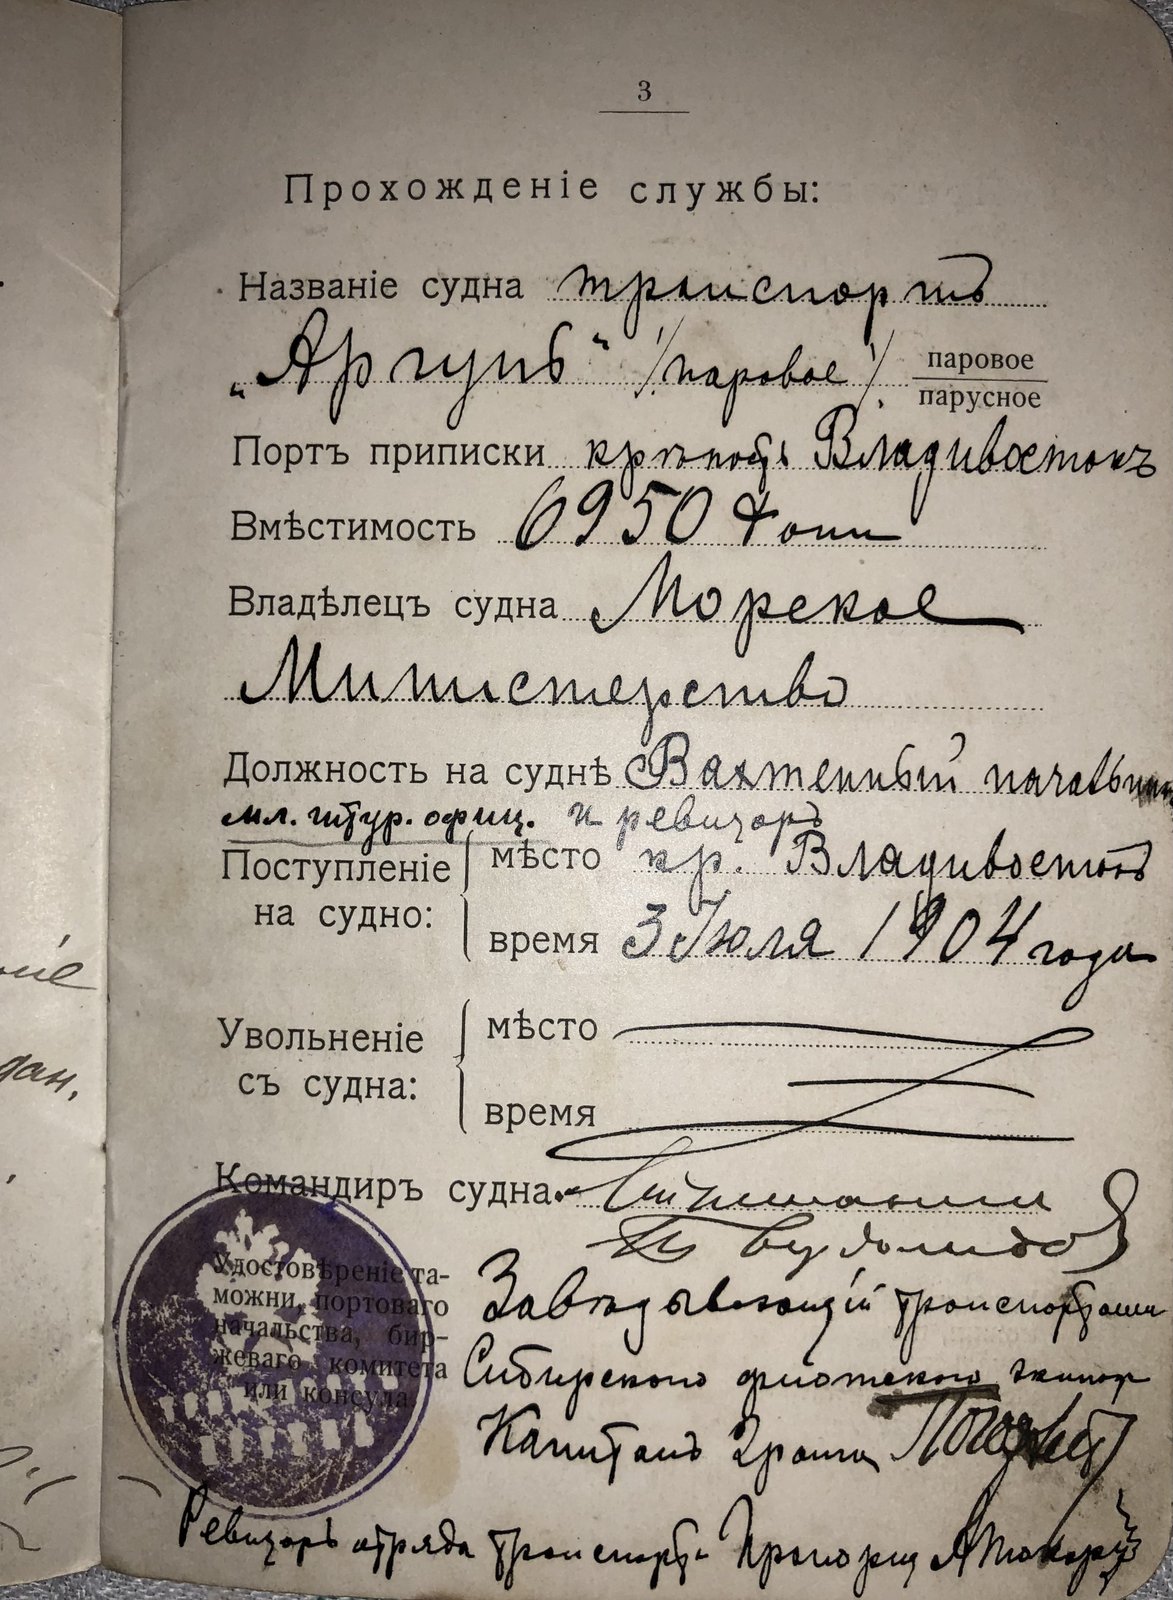 3
Прохожденіе службы:
Названіе судна транспортъ
„Аргунь“ /паровое/. паровое
парусное
Портъ приписки крѣпость Владивостокъ
Вмѣстимость 6950 тонн
Владѣлецъ судна Морское
Министерство
Должность на суднѣ Вахтенный начальник
мл. штур. офиц. и ревизоръ
Поступленіе мѣсто кр. Владивостокъ
на судно:
время 3 Іюля 1904 года
Увольненіе мѣсто
съ судна:
время
Командиръ судна
Удостовѣреніе та-
можни, портоваго
начальства, бир-
жеваго комитета
или консула
Завѣдывающій транспортами
Сибирского флотского экипаж
Капитанъ 2 ранга
Ревизоръ отряда транспорт. Прапорщ
ніе
дан.